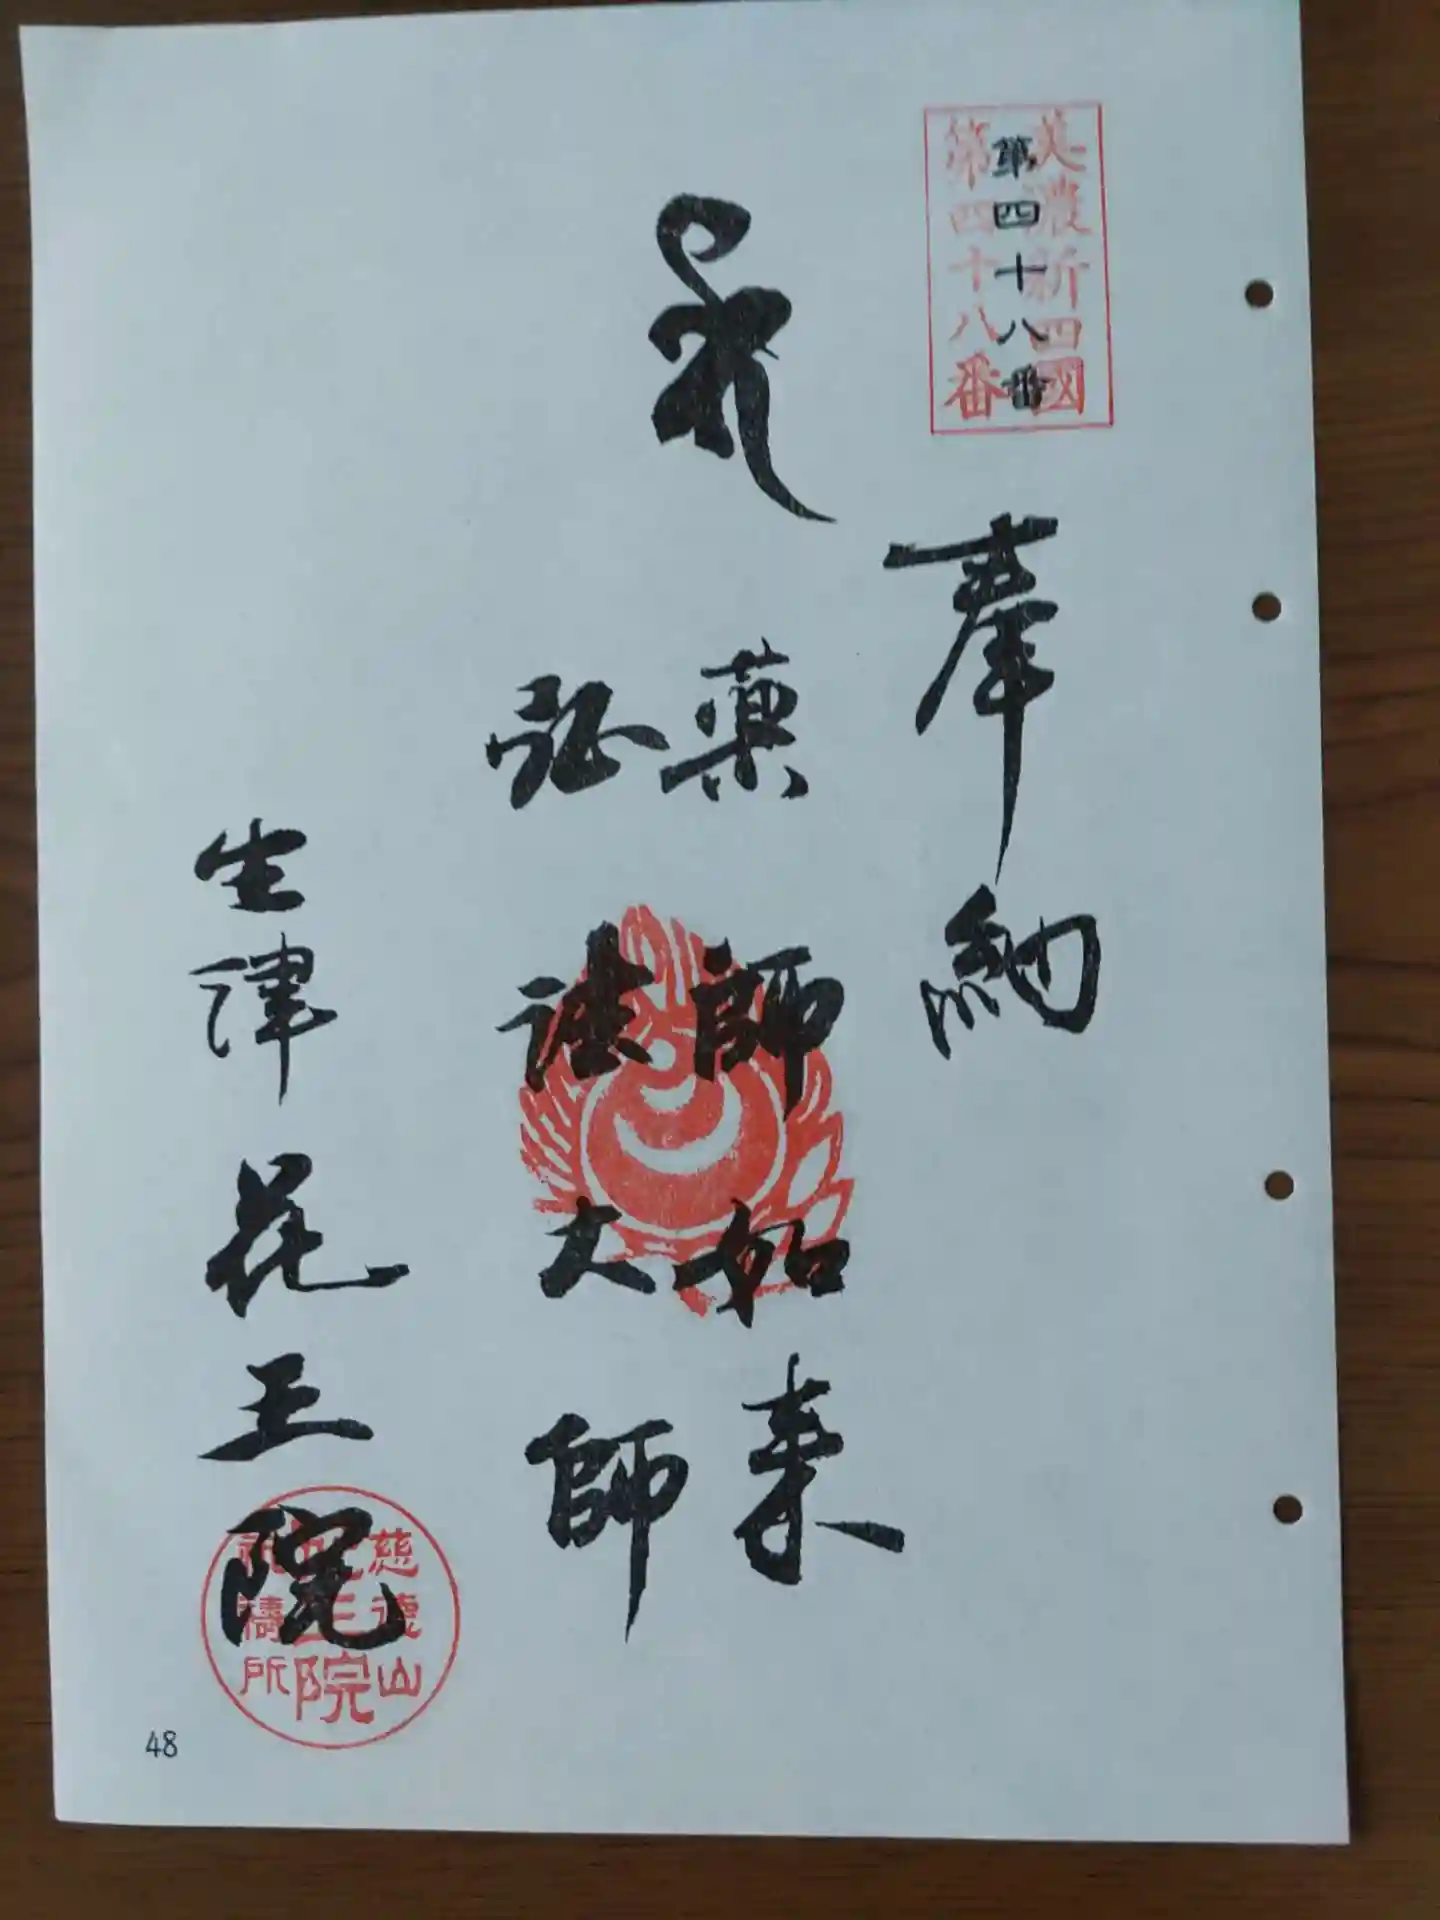 美濃新四國
第四十八番
第四十八番
奉納
薬師如来
弘法大師
生津花王院
慈徳山
王院
祷所
48